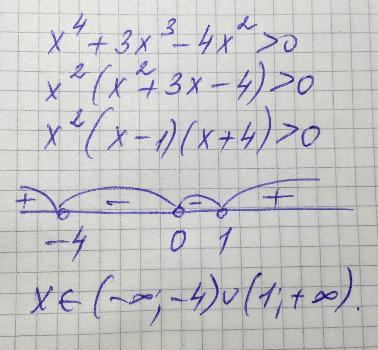 x⁴ + 3x³ - 4x² > 0
x² (x² + 3x - 4) > 0
x² (x - 1) (x + 4) > 0
+ - - +
-4 0 1
x ∈ (-∞; -4) ∪ (1; +∞).